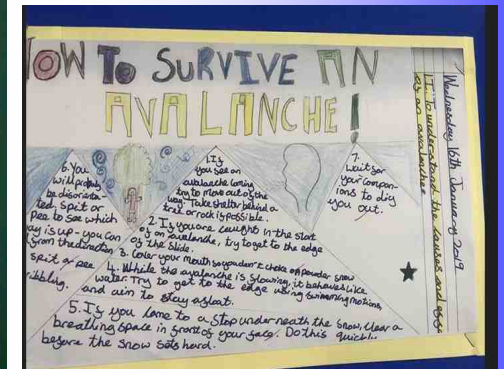 HOW TO SURVIVE AN
AVALANCHE!
Wednesday 16th January 2019
LI: To understand the causes and
of an avalanche
1. If
you see an
avalanche coming
try to move out of the
way. Take shelter behind a
tree or rock is possible.
2. If you are caught in the start
of an avalanche, try to get to the edge
of the slide.
3. Cover your mouth so you don't choke on powder snow
4. While the avalanche is slowing, it behaves like
water. Try to get to the edge using swimming motions,
and aim to stay afloat.
5. If you come to a stop underneath the snow, clear a
breathing space in front of your face. Do this quickly
before the snow sets hard.
6. You
will probably
be disorienta-
ted, spit or
pee to see which
way is up - you can
from the direction
spit or pee
dribbling.
7.
Wait for
your compan-
ions to dig
you out.